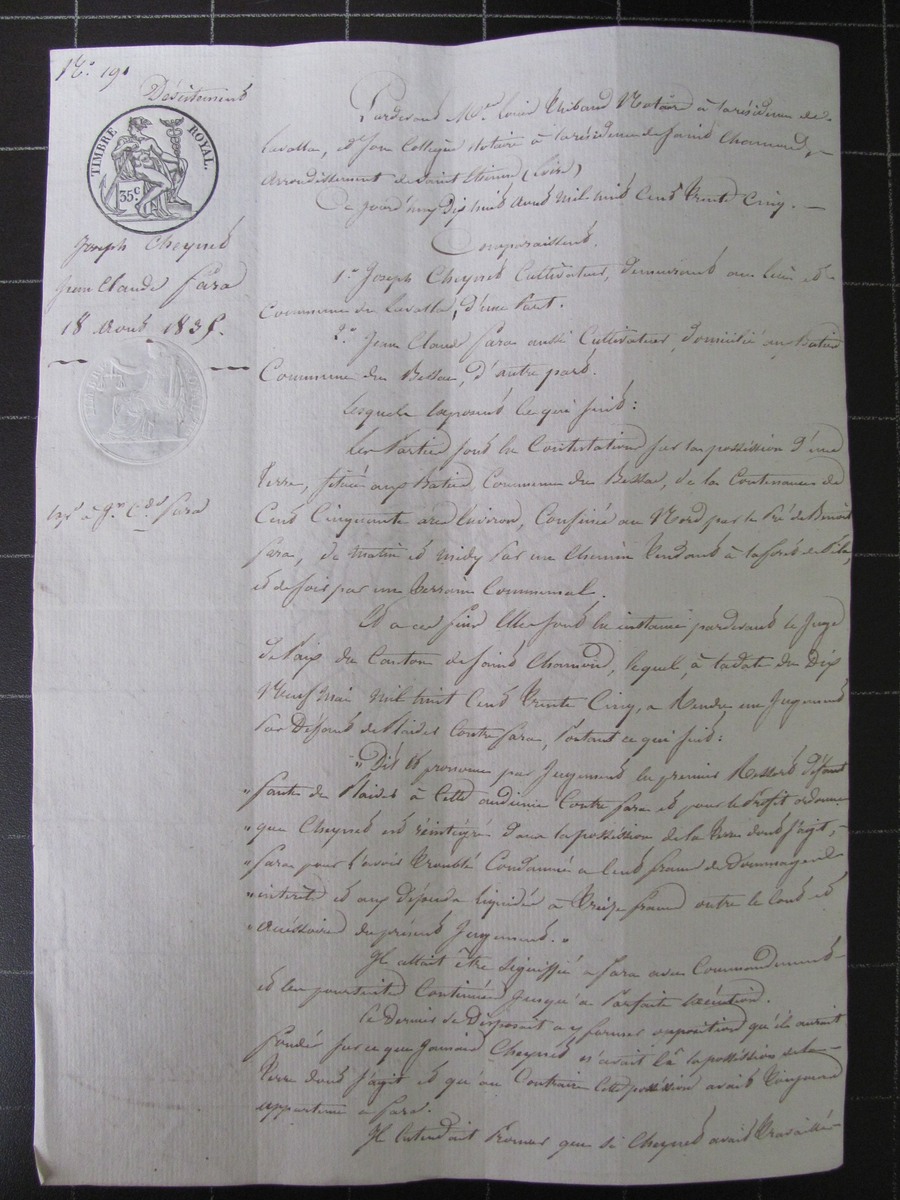 N.º 191
Désistement
TIMBRE ROYAL.
35 c.
Joseph Cheynet
Jean Claude Fara
18 Aout 1835.
Exp. à Jn. Cde. Fara
Pardevant Me. Louis Thibaud Notaire à la résidence de
Lavalla, et son Collègue Notaire à la résidence de Saint Chamond,
Arrondissement de Saint Etienne (Loire)
Ce jourd'huy Dix huit Aout Mil huit Cent Trente Cinq.
Comparaissent.
1.º Joseph Cheynet Cultivateur, demeurant au lieu et
Commune de Lavalla, d'une Part.
2.º Jean Claude Fara aussi Cultivateur, domicilié aux Batiés
Commune du Bessac, d'autre part.
Lesquels exposent ce qui suit:
Les Parties sont en Contestation sur la possession d'une
Terre, située aux Batiés, Commune du Bessac, de la Contenance de
Cent Cinquante ares Environ, Confinée au Nord par le Pré de Benoit
Fara, de matin et midy par un Chemin Tendant à la forêt de Pila,
et de soir par un Terrain Communal.
Et a ces fins Elles sont en instance pardevant le Juge
de Paix du Canton de Saint Chamond, lequel, à la date du Dix
Neuf Mai Mil huit Cent Trente Cinq, a Rendu un Jugement
Par Deffaut de Plaider Contre Fara, Portant ce qui suit:
"Dit Et prononce par Jugement en premier Ressort défaut
"faute de Plaider à Cette audience Contre Fara et pour le Profit ordonne
"que Cheynet est réintégré dans la possession de la Terre dont s'agit,
"Fara pour l'avoir Troublé Condamné a Cent francs de Dommages
"intérêts et aux dépends liquidés à Treize francs outre le Cout et
"accessoires du présent Jugement."
Il allait être signiffié a Fara avec Commandement
et les poursuites Continuées Jusqu'a Parfaite Exécution.
Ce Dernier se Disposait a y former opposition qu'il aurait
fondée sur ce que Jamais Cheynet n'avait eû la possession de la
Terre dont s'agit et qu'au Contraire Cette possession avait Toujours
appartenu a Fara.
Il Entendait Prouver que si Cheynet avait Travaillé